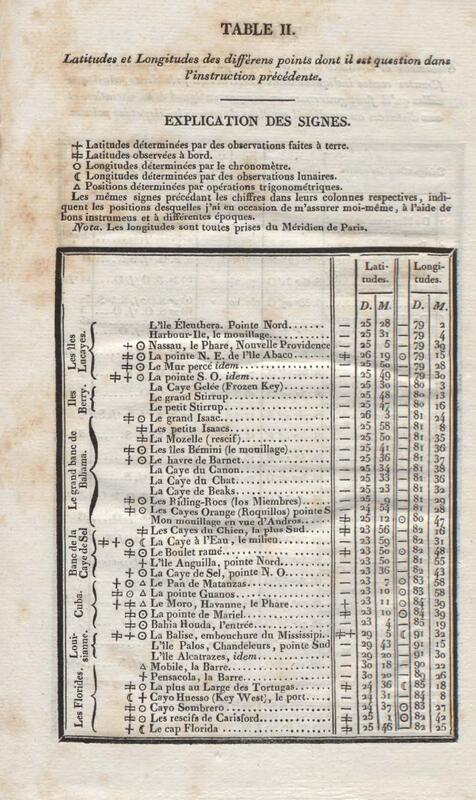 TABLE II.
Latitudes et Longitudes des différens points dont il est question dans
l'instruction précédente.
EXPLICATION DES SIGNES.
+ Latitudes déterminées par des observations faites à terre.
⋕ Latitudes observées à bord.
O Longitudes déterminées par le chronomètre.
☾ Longitudes déterminées par des observations lunaires.
Δ Positions déterminées par opérations trigonométriques.
Les mêmes signes précédant les chiffres dans leurs colonnes respectives, indi-
quent les positions desquelles j'ai eu occasion de m'assurer moi-même, à l'aide de
bons instrumeus et à différentes époques.
Nota. Les longitudes sont toutes prises du Méridien de Paris.
Lati- Longi-
tudes. tudes.
D. M. D. M.
Les îles Lucayes.
L'île Éleuthera. Pointe Nord....... — 25 28 — 79 2
Harbour-Ile, le mouillage.......... — 25 31 — 79 4
+ ⊙ Nassau, le Phare, Nouvelle Providence — 25 5 — 79 39
⋕ ⊙ La pointe N. E. de l'île Abaco...... ⋕ 26 19 ⊙ 79 15
⋕ ⊙ Le Mur percé idem............... — 79 28
⋕ + ⊙ La pointe S. O. idem............. — 25 49 — 79 30
Iles Berry.
La Caye Gelée (Frozen Key)........ — 25 30 — 80 3
Le grand Stirrup................. — 25 48 — 80 13
Le petit Stirrup.................. — 25 47 — 80 16
Le grand banc de Bahama.
⋕ ⊙ Le grand Isaac................... — 26 3 — 81 24
⋕ Les petits Isaacs.................. — 25 58 — 81 8
⋕ La Mozelle (rescif)................ — 25 50 — 81 35
⋕ ⊙ Les îles Bémini (le mouillage)....... — 25 41 — 81 36
+ ⊙ Le havre de Barnet................ — 25 36 — 81 37
La Caye du Canon................ — 25 34 — 81 38
La Caye du Chat................. — 25 33 — 81 36
La Caye de Beaks................. — 25 23 — 81 32
⋕ ⊙ Les Riding-Rocs (los Miembres)..... — 25 9 — 81 29
⋕ ⊙ Les Cayes Orange (Roquillos) pointe S — 24 54 — 81 28
Mon mouillage en vue d'Andros..... ⋕ 25 12 ⊙ 80 47
Banc de la Caye de Sel
⋕ Les Cayes du Chien, la plus Sud..... ⋕ 23 56 — 82 16
⋕ + ⊙ ☾ La Caye à l'Eau, le milieu........... — 23 59 — 82 31
⋕ ⊙ Le Boulet ramé................... ⋕ 23 50 ⊙ 82 48
+ L'île Anguilla, pointe Nord.......... — 23 50 — 81 55
+ ⊙ La Caye de Sel, pointe N. O........ — 23 36 — 82 43
Cuba.
+ ⊙ Δ Le Pan de Matanzas............... — 23 7 ⊙ 83 58
⋕ ⊙ Δ La pointe Guanos................. — 23 10 ⊙ 83 58
+ ⋕ Δ Le Moro, Havanne, le Phare....... + 23 11 ⊙ 84 39
⋕ ⊙ La pointe de Mariel............... ⋕ 23 10 ⊙ 84 39
⋕ ⊙ Bahia Houda, l'entrée............. — 23 4 — 85 19
Loui- sianne.
⋕ + ⊙ La Balise, embouchure du Mississipi.. 29 5 ☾ 91 32
L'île Palos, Chandeleurs, pointe Sud — 29 43 — 91 15
L'île Alcatrazes, idem.............. — 29 20 — 91 30
Les Florides.
Δ Mobile, la Barre.................. — 30 18 — 90 22
+ Pensacola, la Barre................ — 30 20 — 89 26
⋕ ⊙ La plus au Large des Tortugas...... ⋕ 24 36 ☾ 85 18
☾ + Cayo Hueso (Key West), le port..... — 24 31 — 84 8
⋕ ⊙ Cayo Sombrero................... — 24 37 ⊙ 83 27
⋕ ⊙ Les rescifs de Carisford............ ⋕ 25 1 ⊙ 82 42
+ ☾ Le cap Florida................... ⋕ 25 46 — 82 25